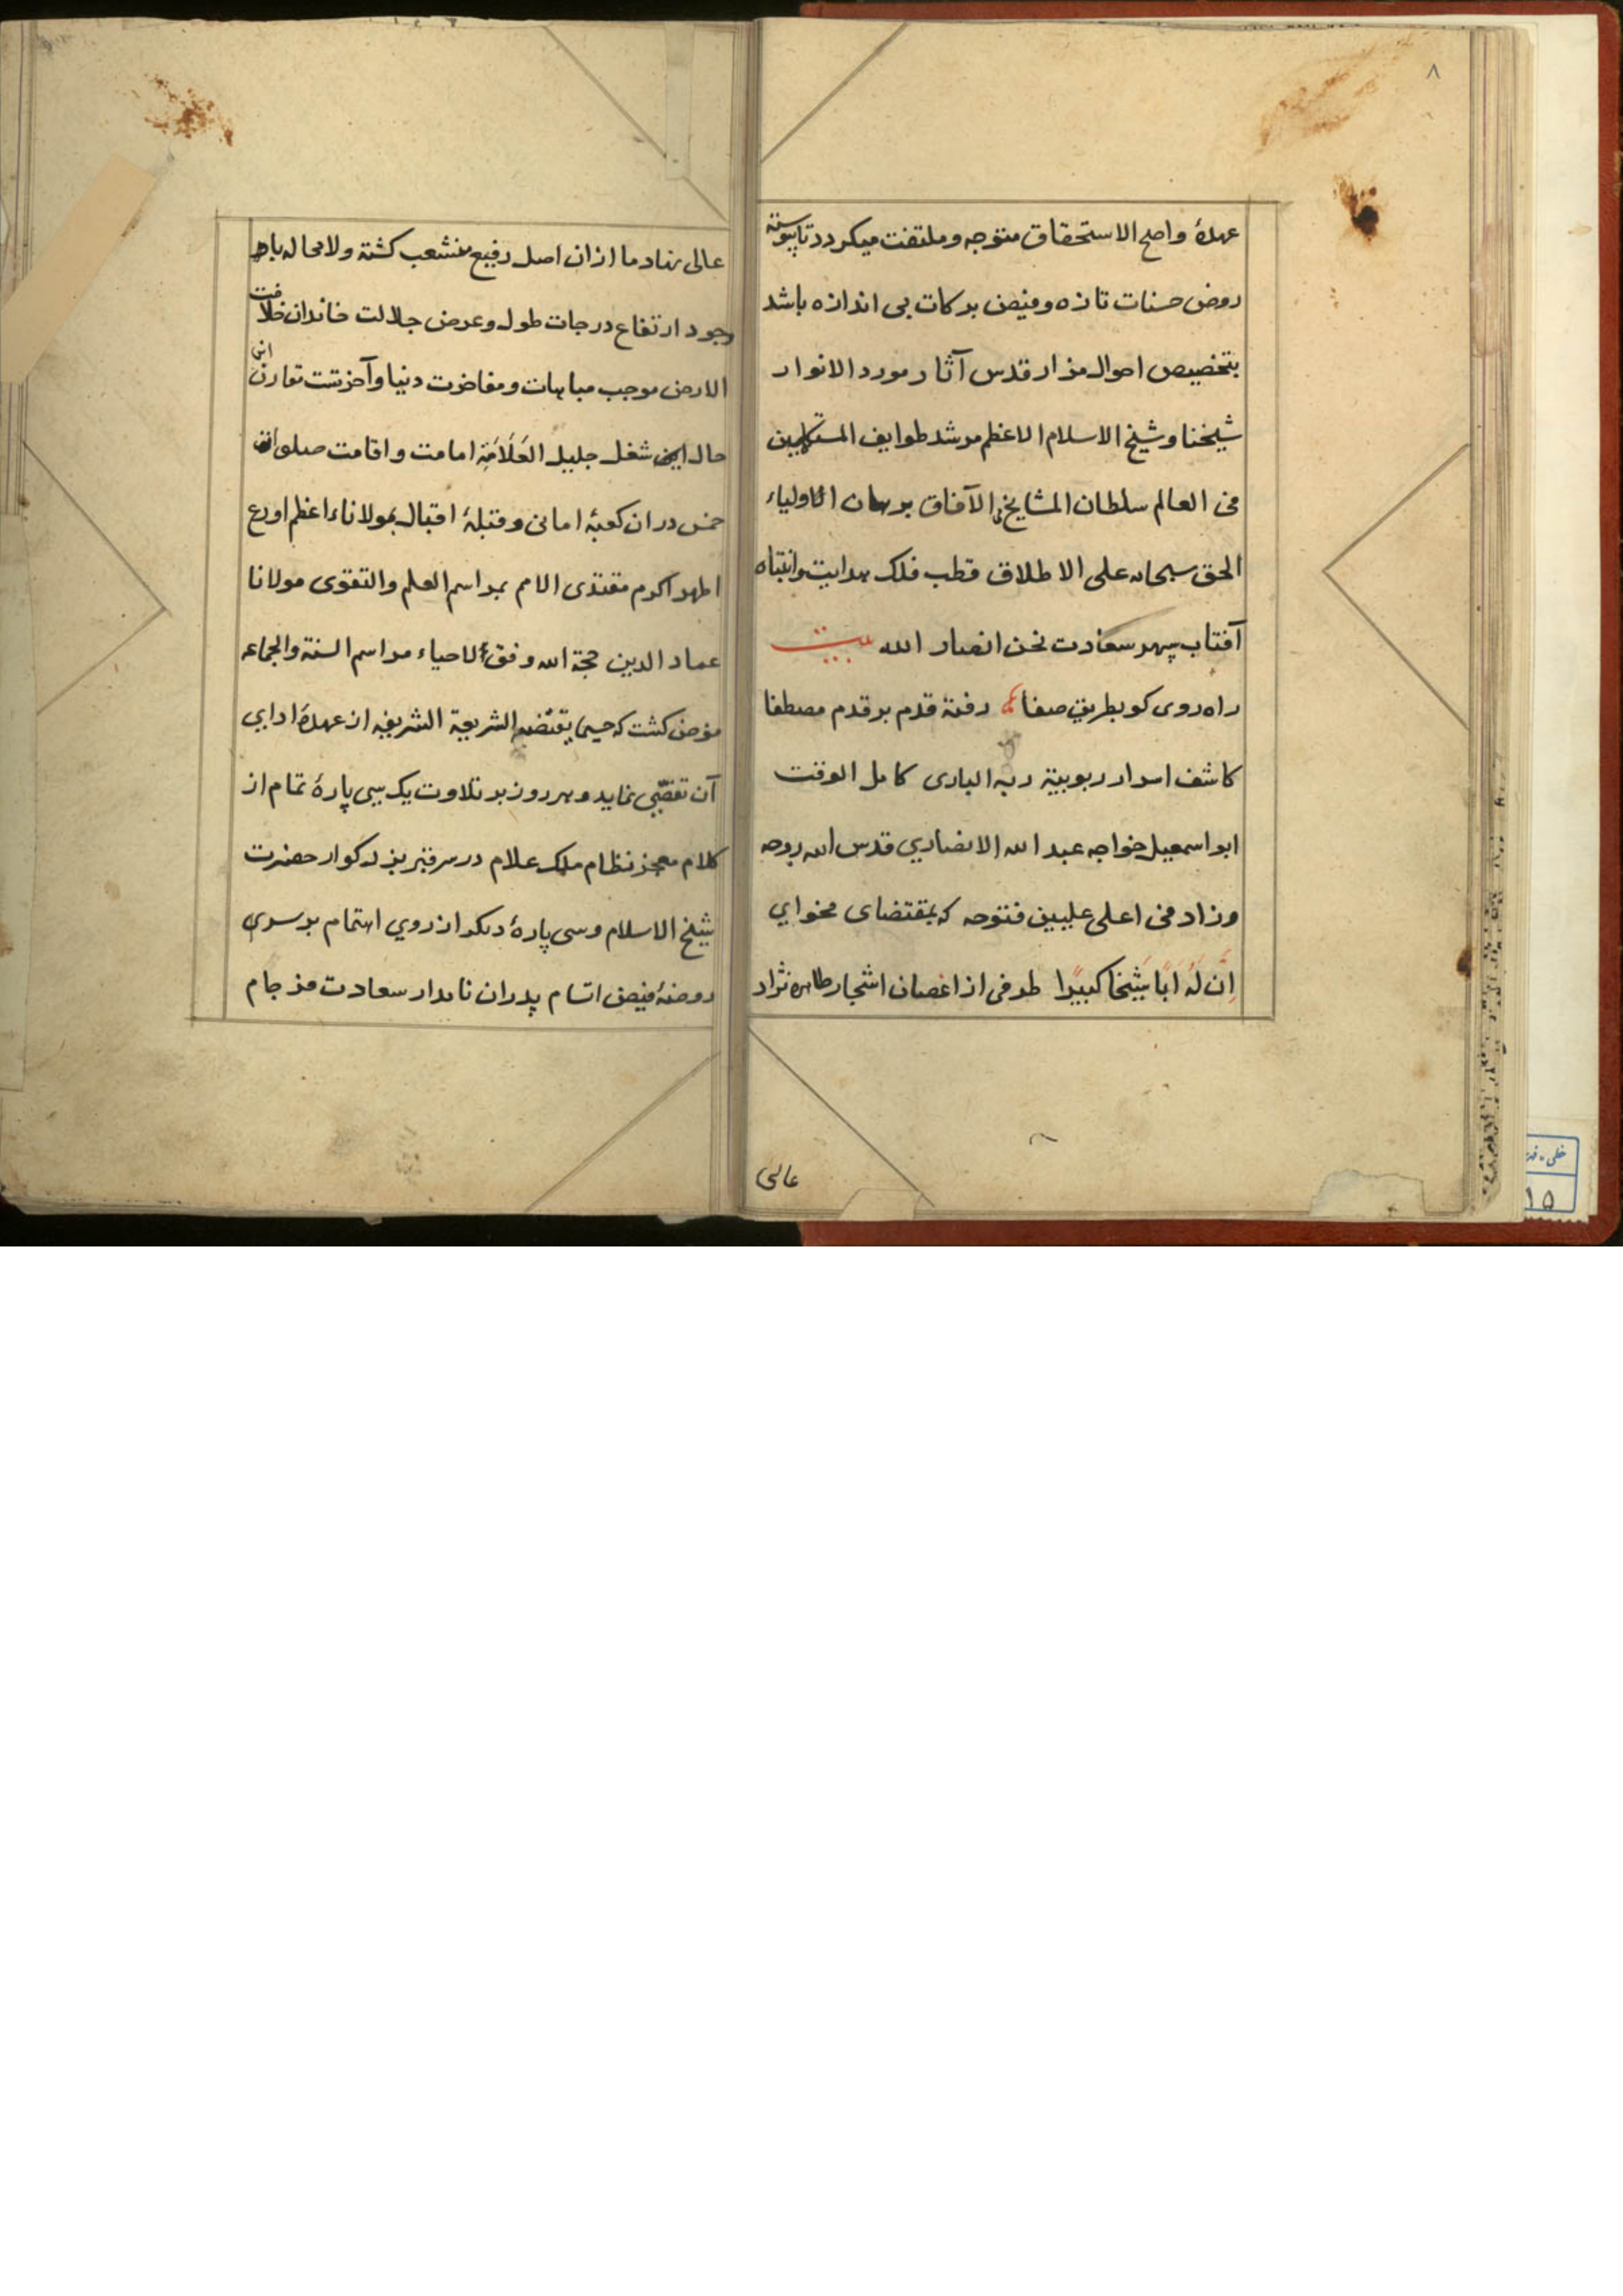 ۸
عهدهٔ واصلح الاستحقاق متوجه و ملتفت میکردد تا پیوسته
روض حسنات تازه و فیض برکات بی اندازه باشد
بتخصیص احوال مزار قدس آثار مورد الانوار
شیخنا و شیخ الاسلام الاعظم مرشد طوایف
فی العالم سلطان المشایخ فی الآفاق برهان الاولیاء
الحق سبحانه علی الاطلاق قطب فلک هدایت وانتباه
آفتاب سپهر سعادت نحن انصار الله بیت
راه روی کو بطریق صفا رفته قدم بر قدم مصطفا
کاشف اسرار ربوبیة ربه الباری کامل الوقت
ابواسمعیل خواجه عبدالله الانصاری قدس الله روحه
وزاد فی اعلی علیین فتوحه که بمقتضای فحوای
اِنَّ لَهُ اَبًا شَیْخًا کبیرًا طرفی از اغصان اشجار طاهره نژاد
عالی
عالی نهاد ما ازان اصل رفیع منشعب کشته ولامحاله باهر
وجود ارتفاع درجات طول وعرض جلالت خاندان خلافت
الارض موجب مباهات و مفاخرت دنیا وآخرتست تقارن انی
حال این شغل جلیل العَلَامَة امامت و اقامت صلوات
خمس دران کعبهٔ امانی و قبلهٔ اقبال بمولاناء اعظم اورع
اطهر اکرم مقتدی الامم بمراسم العلم والتقوی مولانا
عماد الدین حجة الله وفق لاحیاء مراسم السنة والجماعه
مفوض کشت که حیثما یقتضیه الشریعة الشریفه از عهدهٔ ادای
آن تفصّی نماید و هر روز بر تلاوت یک سی پارهٔ تمام از
کلام معجز نظام ملک علام در سر قبر بزرکوار حضرت
شیخ الاسلام و سی پارهٔ دیکر از روی اهتمام بر سری
روضهٔ فیض اتسام پدران نامدار سعادت فرجام
۱۵